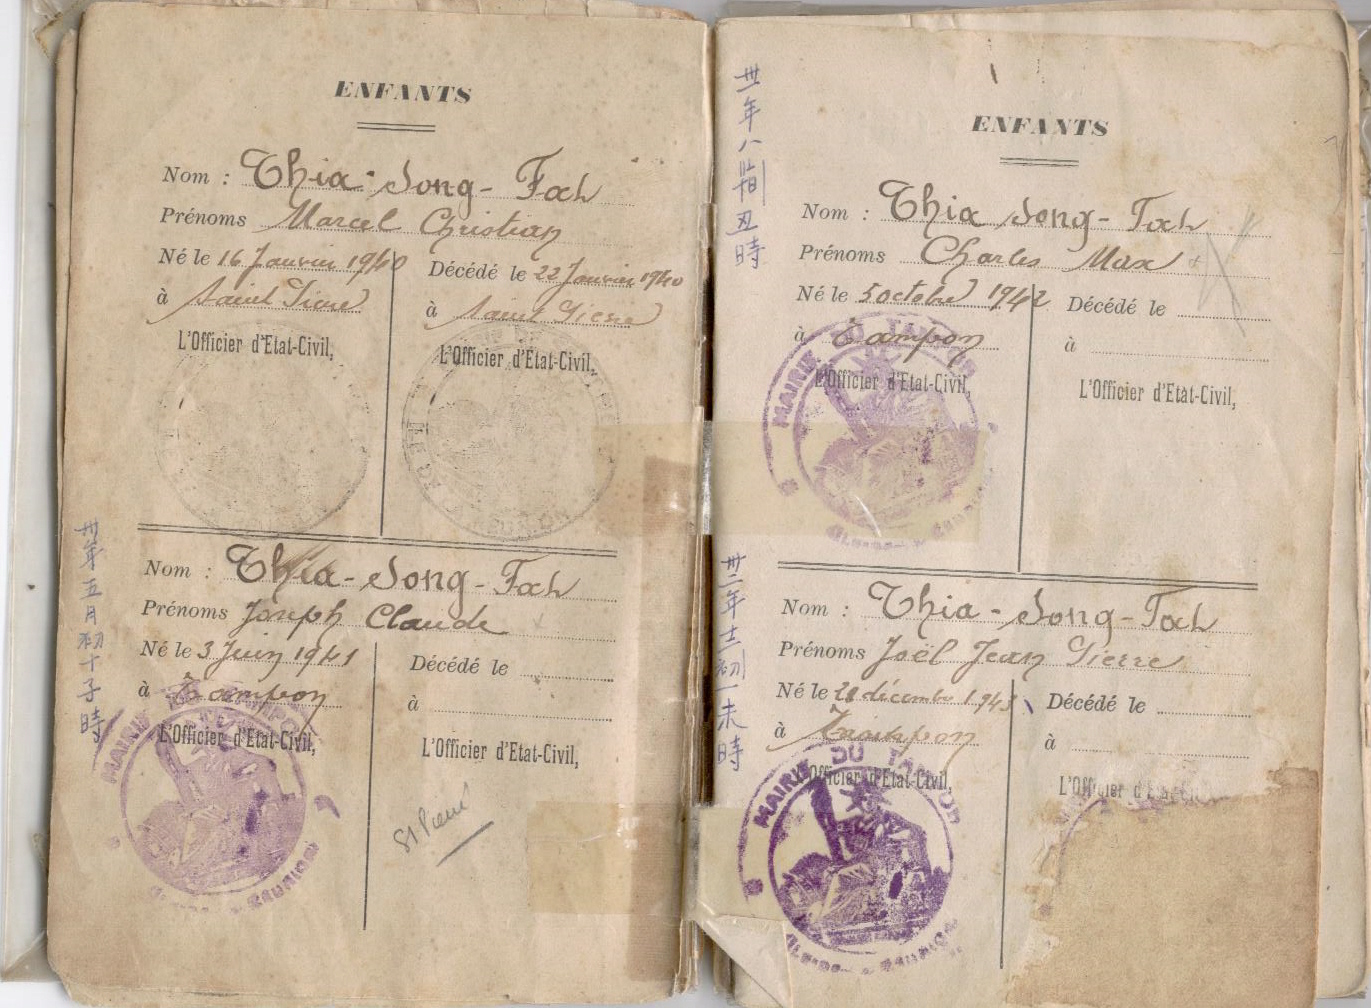 ENFANTS
Nom : Thia-Song-Fah
Prénoms Marcel Christian
Né le 16 Janvier 1940
à Saint Pierre
L'Officier d'Etat-Civil,
Décédé le 22 Janvier 1940
à Saint Pierre
L'Officier d'Etat-Civil,
ILE DE LA RÉUNION
Nom : Thia-Song-Fah
Prénoms Joseph Claude
Né le 3 Juin 1941
à Tampon
L'Officier d'Etat-Civil,
MAIRIE DU TAMPON
Décédé le
à
L'Officier d'Etat-Civil,
St Pierre
卅年五月初十子時
ENFANTS
Nom : Thia Song-Fah
Prénoms Charles Max
Né le 5 octobre 1942
à Tampon
L'Officier d'Etat-Civil,
MAIRIE DU TAMPON
Décédé le
à
L'Officier d'Etat-Civil,
年八 丑時
Nom : Thia-Song-Fah
Prénoms Joël Jean Pierre
Né le 28 décembre 1943
à Tampon
L'Officier d'Etat-Civil,
MAIRIE DU TAMPON
Décédé le
à
L'Officier d'Etat-Civil
卅二年十二初一未時